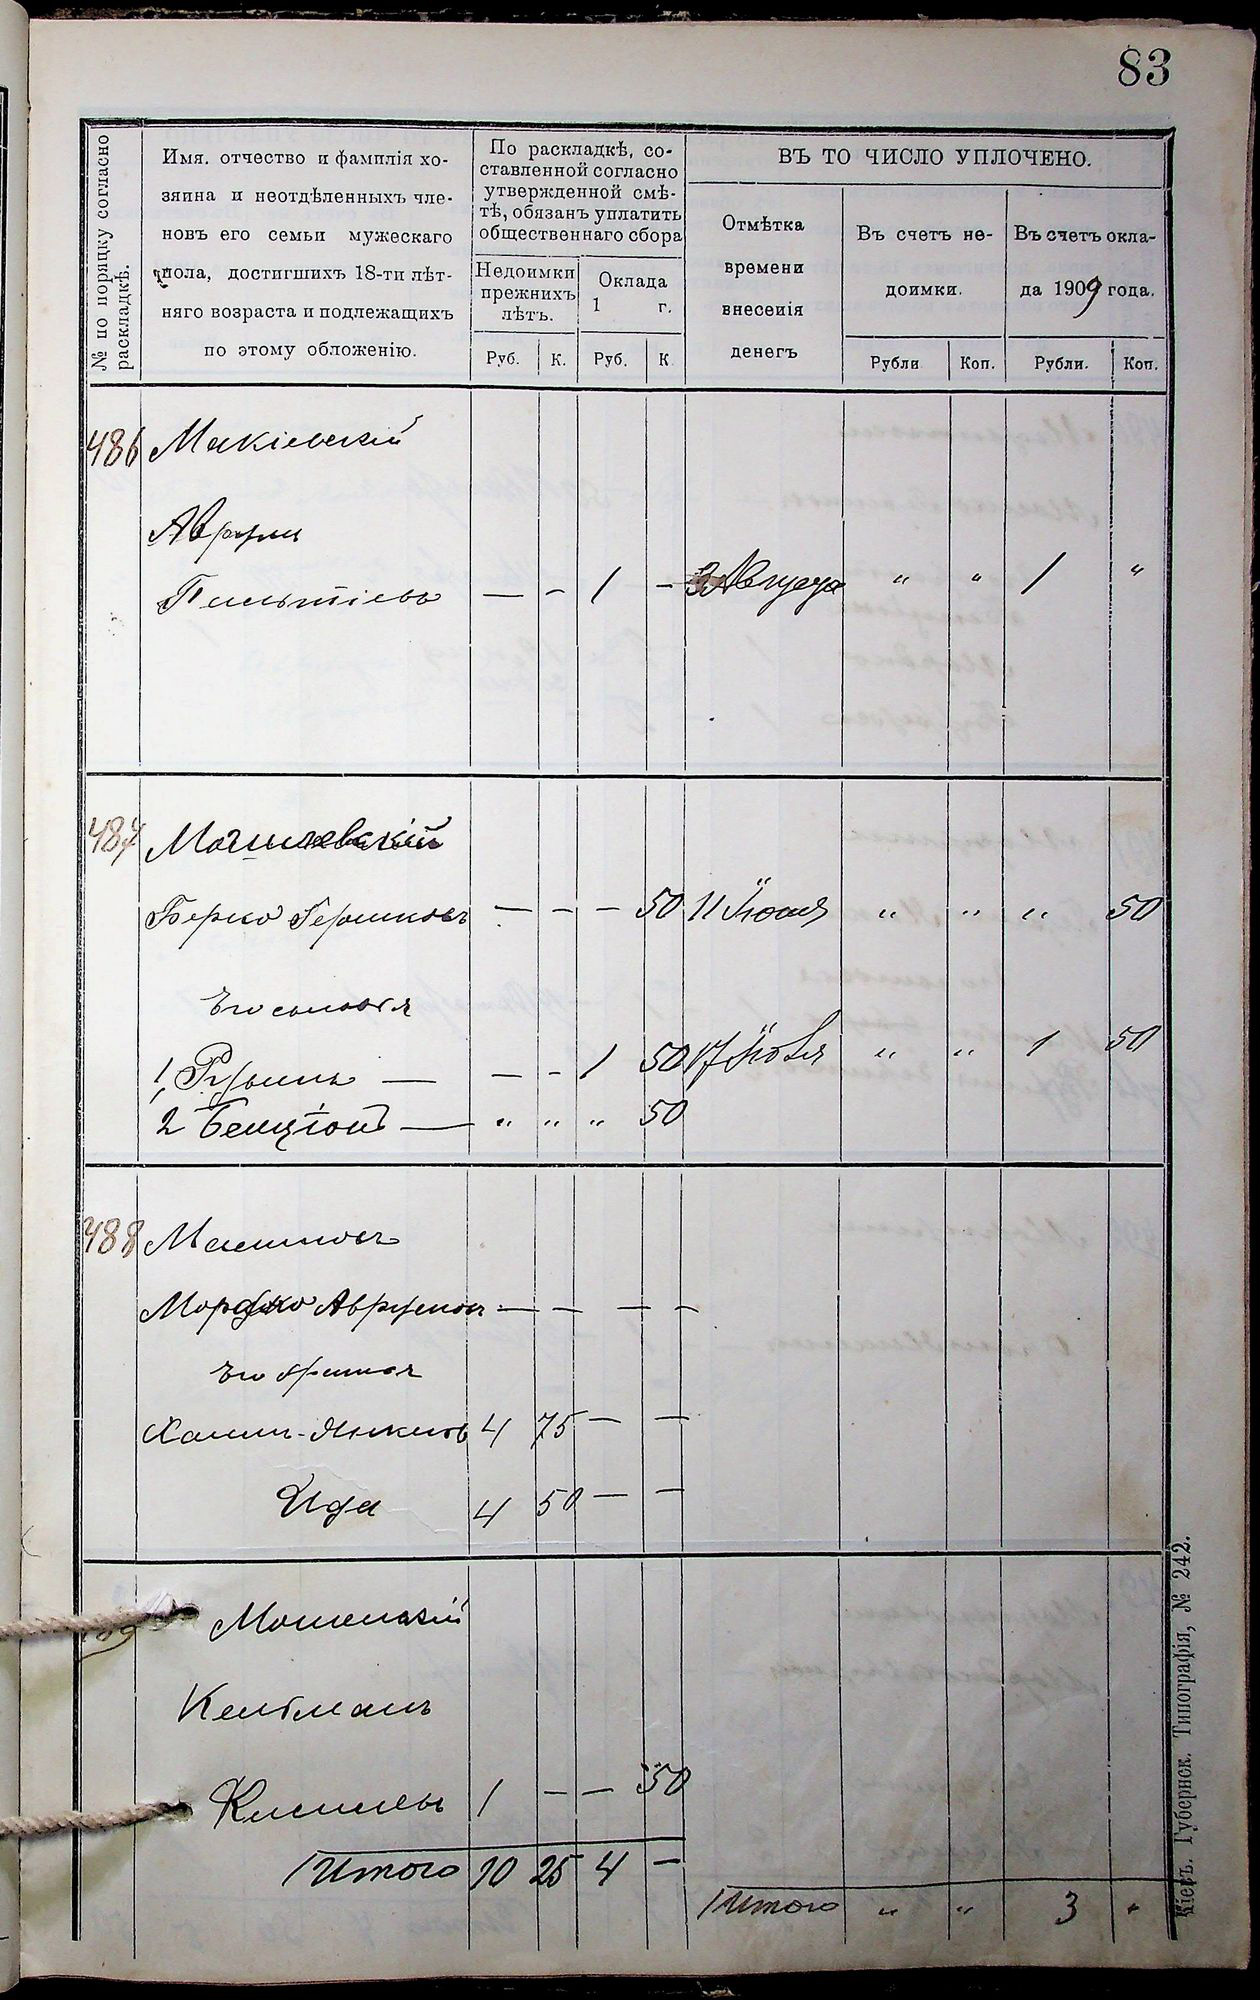 83
№ по порядку согласно раскладкѣ.
Имя, отчество и фамилія хо-
зяина и неотдѣленныхъ чле-
новъ его семьи мужескаго
пола, достигшихъ 18-ти лѣт-
няго возраста и подлежащихъ
по этому обложенію.
По раскладкѣ, со-
ставленной согласно
утвержденной смѣ-
тѣ, обязанъ уплатить
общественнаго сбора
Недоимки
прежнихъ
лѣтъ.
Оклада
1 г.
Руб. К. Руб. К
ВЪ ТО ЧИСЛО УПЛОЧЕНО.
Отмѣтка
времени
внесенія
денегъ
Въ счетъ не-
доимки.
Въ счетъ окла-
да 1909 года.
Рубли Коп. Рубли. Коп.
486 Макіевскій
Аврум
— - 1 — 3 Августа " " 1 "
487 Могилевскій
Берко Гершковъ — - — 50 11 Іюня " " " 50
Его сыновья
1, — — - 1 50 17 Іюля " " 1 50
2 Бенціонъ — " " " 50
488
Мордко Аврумов — — — —
Его братья
Хаим-Янкель 4 75 — —
Ида 4 50 — —
Мошенскій
Кельманъ
1 — — 50
Итого 10 25 4 —
Итого " " 3 "
Кіевъ. Губернск. Типографія, № 242.